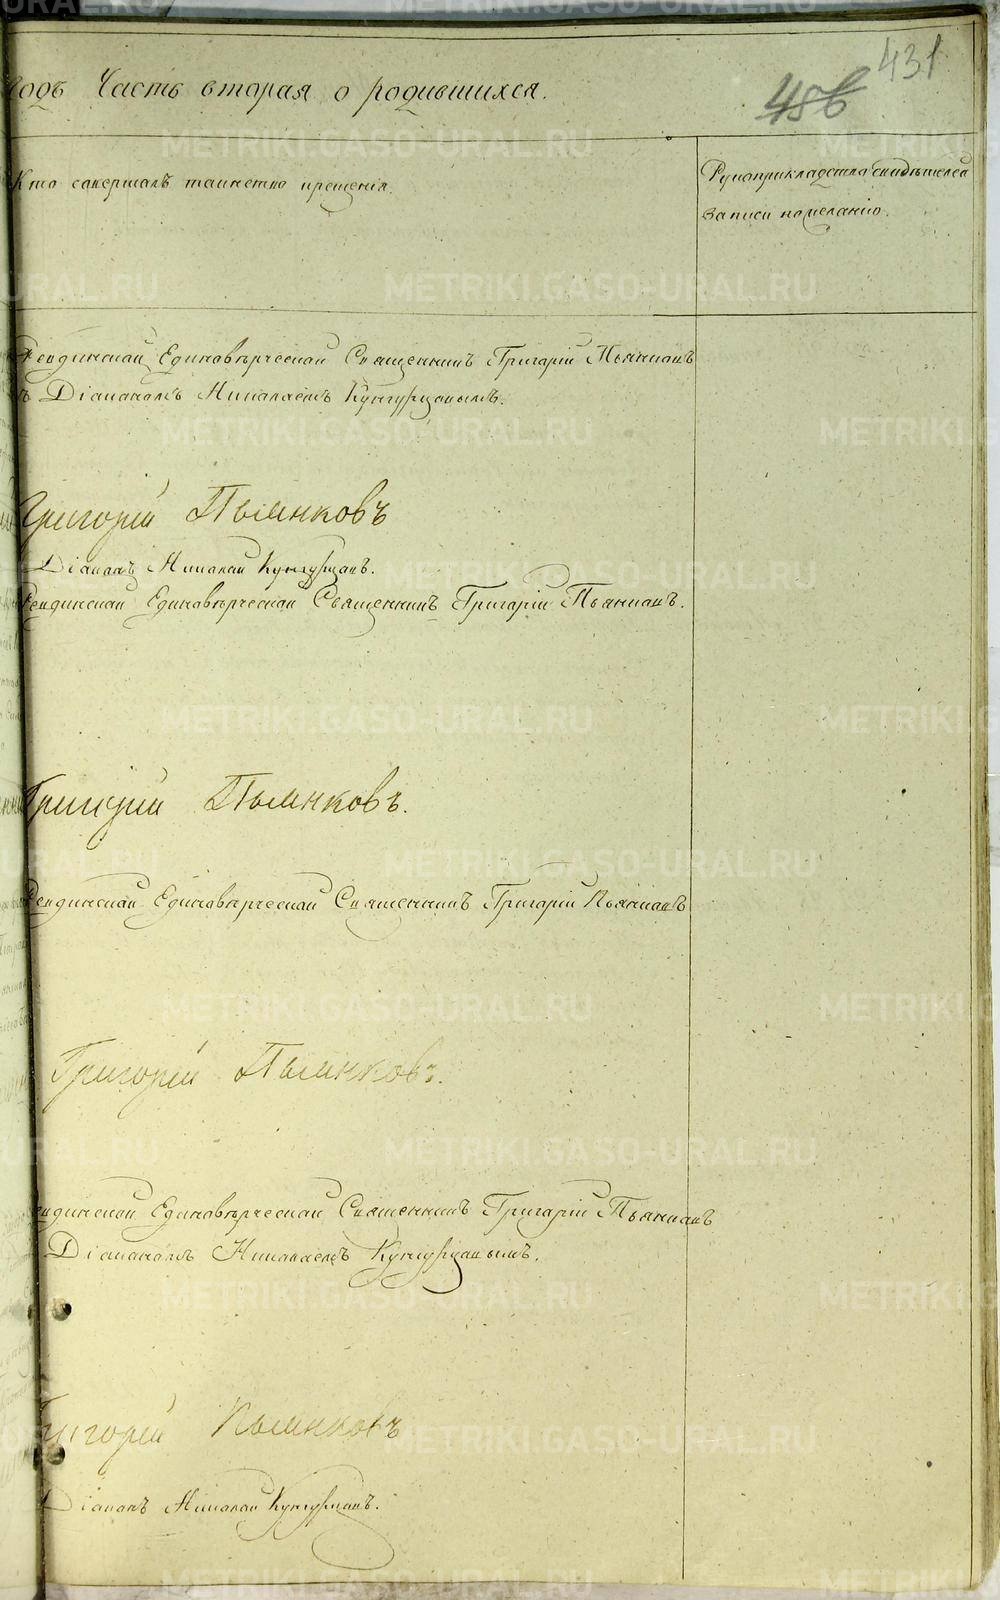 431
Годъ Часть вторая о родившихся.
486
Кто савершалъ таинство крещенія.
Рукаприкладство свидѣтелей
записи пожеланію.
Ревдинскай Единавѣрческай Священникъ Григарій Пьянкавъ
съ Діаканамъ Никалаемъ Кунгурцавымъ.
Григорій Пьянковъ
Діаканъ Никалай Кунгурцавъ.
Ревдинскай Единавѣрческай Священникъ Григарій Пьянкавъ.
Григорій Пьянковъ.
Ревдинскай Единавѣрческай Священникъ Григарій Пьянкавъ
Григорій Пьянковъ.
Ревдинскай Единавѣрческай Священникъ Григарій Пьянкавъ
Діаканамъ Никалаемъ Кунгурцавымъ.
Григорій Пьянковъ
Діаканъ Никалай Кунгурцавъ.
METRIKI.GASO-URAL.RU